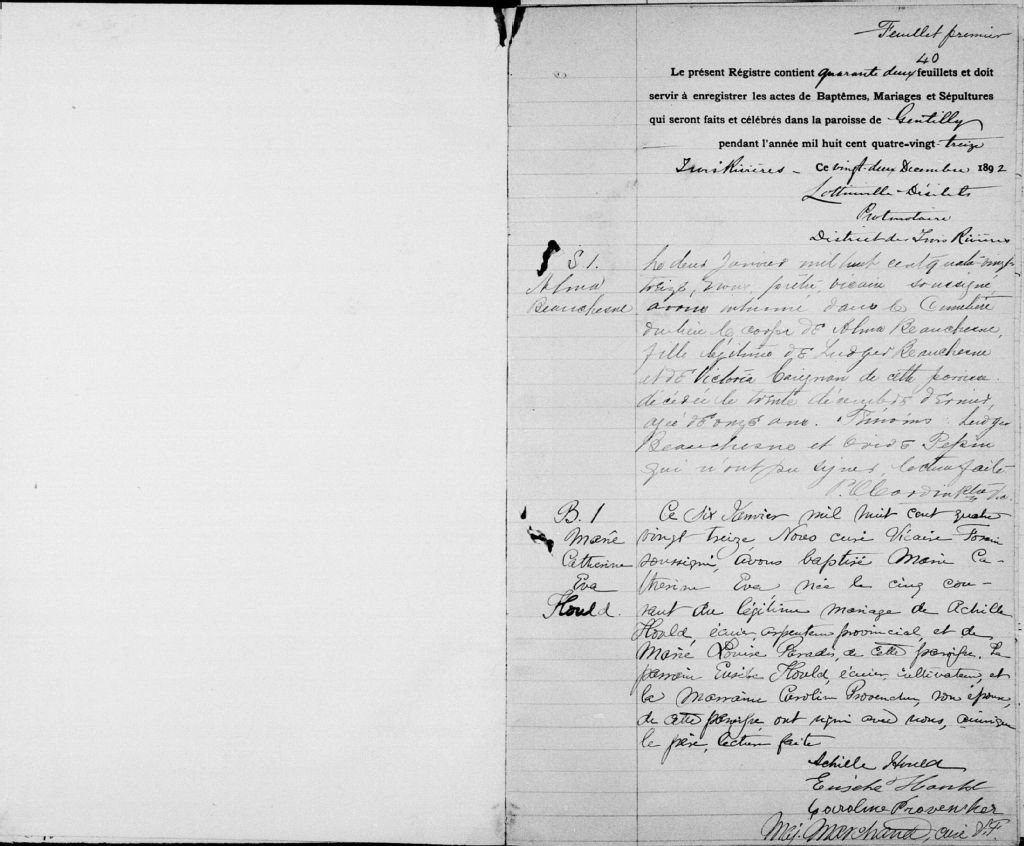 Feuillet premier
40
Le présent Régistre contient quarante deux feuillets et doit
servir à enregistrer les actes de Baptêmes, Mariages et Sépultures
qui seront faits et célébrés dans la paroisse de Gentilly
pendant l'année mil huit cent quatre-vingt-treize
Trois Rivières - Ce vingt-deux Decembre 1892
Lottinville-Désilets
Protonotaire
District des Trois Rivières
S. 1.
Alma
Beauchesne
Le deux Janvier mil huit cent quatre-vingt
treize, nous, prêtre, vicaire soussigné,
avons inhumé dans le Cimetière
du lieu le corps de Alma Beauchesne,
fille légitime de Ludger Beauchesne
et de Victoria Carignan de cette paroisse
décédée le trente décembre dernier,
agée de onze ans. Témoins, Ludger
Beauchesne et Ovide Pepin
qui n'ont pu signer, lecture faite
B. 1
Marie
Catherine
Eva
Hould.
Ce Six Janvier mil huit cent quatre
vingt treize Nous curé Vicaire Forain
soussigné, avons baptisé Marie Ca-
therine Eva née le cinq cou-
rant du légitime mariage de Achille
Hould, écuier, arpenteur provincial, et de
Marie Louise Paradis, de cette paroisse. Le
parrain Eusèbe Hould, écuier, cultivateur, et
la Marraine Caroline Provencher, son épouse,
de cette paroisse ont signé avec nous, ainsi que
le père, lecture faite
Achille Hould
Eusèbe Hould
Caroline Provencher
Marchand, curé V.F.